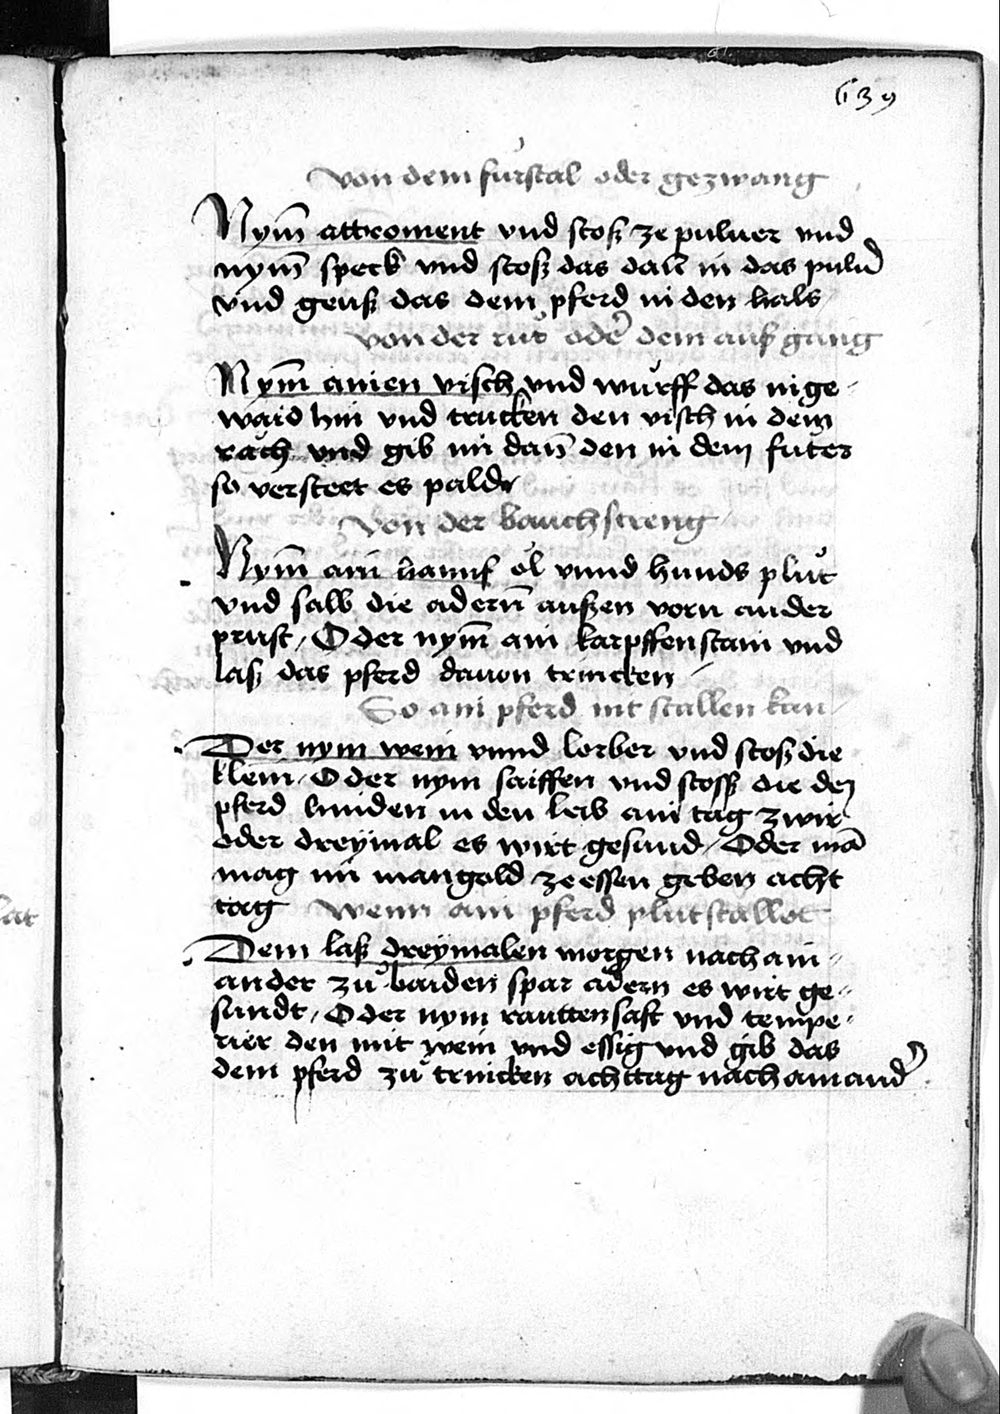 139
von dem furstal oder gezwang
Nym̄ attroment vnd stoß ze puluer vnd
nym̄ speck vnd stoß das dan̄ in das pulủ
vnd geuß das dem pferd in den hals
von der růt oder̉ dem außgang
Nym̄ ainen visch vnd wůrff das inge-
waid hin vnd trucken den visch in dem
rach vnd gib im dan̄ den in dem fůter
so versteet es pald
von der bauchstreng
Nym̄ ain hannf öl vnnd hunds plůt
vnd salb die adern̄ außen vorn an der
prust / Oder nym̄ ain karpffenstain vnd
laß das pferd dauon trincken /
So ain pferd nit stallen kan
Der nym wein vnnd lorber vnd stoß die
klein / Oder nym saiffen vnd stoß die dem
pferd hinden in den leib ain tag zwir
oder dreymal es wirt gesund / Oder mā
mag im mangold ze essen geben acht
tag wenn ain pferd plůt stallet
Dem laß dreymalen morgen nach ain-
ander zů baiden spar adern es wirt ge-
sundt / Oder nym rauttensaft vnd tempe-
rier den mit wein vnd essig vnd gib das
dem pferd zů trincken acht tag nach ainand̉
lat